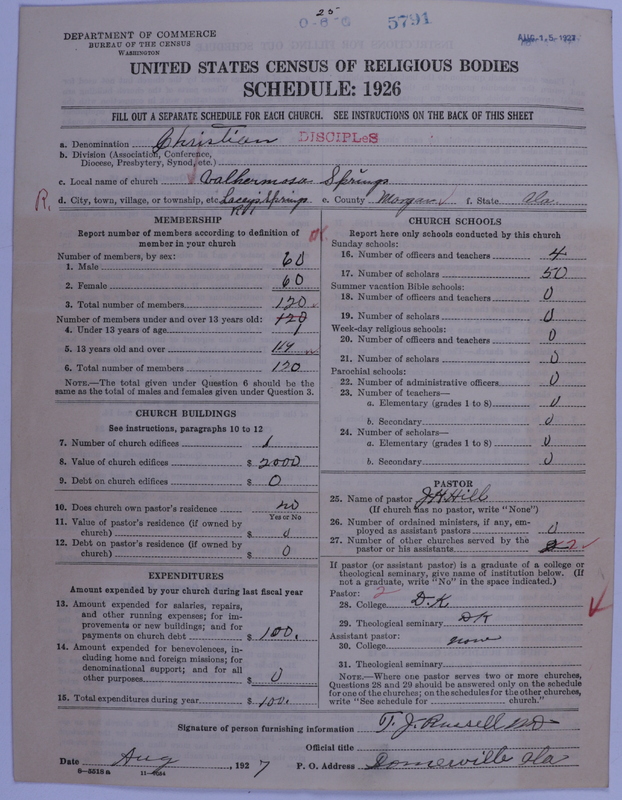 25
0-8-6 5791
DEPARTMENT OF COMMERCE
BUREAU OF THE CENSUS
WASHINGTON
AUG 15 1927
UNITED STATES CENSUS OF RELIGIOUS BODIES
SCHEDULE: 1926
FILL OUT A SEPARATE SCHEDULE FOR EACH CHURCH. SEE INSTRUCTIONS ON THE BACK OF THIS SHEET
a. Denomination Christian DISCIPLES
b. Division (Association, Conference,
Diocese, Presbytery, Synod, etc.)
c. Local name of church Valhermosa Springs
R. d. City, town, village, or township, etc. Laceys Springs e. County Morgan f. State Ala
R#1
MEMBERSHIP
Report number of members according to definition of
member in your church
Number of members, by sex:
1. Male 60
2. Female 60
3. Total number of members 120
Number of members under and over 13 years old: 120
4. Under 13 years of age 1
5. 13 years old and over 119
6. Total number of members 120
NOTE.—The total given under Question 6 should be
same as the total of males and females given under Question 3.
CHURCH BUILDINGS
See instructions, paragraphs 10 to 12
7. Number of church edifices 1
8. Value of church edifices $ 2000
9. Debt on church edifices $ 0
10. Does church own pastor's residence no
Yes or No
11. Value of pastor's residence (if owned by
church) $ 0
12. Debt on pastor's residence (if owned by
church) $ 0
EXPENDITURES
Amount expended by your church during last fiscal year
13. Amount expended for salaries, repairs,
and other running expenses; for im-
provements or new buildings; and for
payments on church debt $ 100.
14. Amount expended for benevolences, in-
cluding home and foreign missions; for
denominational support; and for all
other purposes $ 0
15. Total expenditures during year $ 100.
CHURCH SCHOOLS
Report here only schools conducted by this church
Sunday schools:
16. Number of officers and teachers 4
17. Number of scholars 50
Summer vacation Bible schools:
18. Number of officers and teachers 0
19. Number of scholars 0
Week-day religious schools:
20. Number of officers and teachers 0
21. Number of scholars 0
Parochial schools:
22. Number of administrative officers 0
23. Number of teachers—
a. Elementary (grades 1 to 8) 0
b. Secondary 0
24. Number of scholars—
a. Elementary (grades 1 to 8) 0
b. Secondary 0
PASTOR
25. Name of pastor J H Hill
(If church has no pastor, write "None")
26. Number of ordained ministers, if any, em-
ployed as assistant pastors 0
27. Number of other churches served by the
pastor or his assistants 2
If pastor (or assistant pastor) is a graduate of a college or
theological seminary, give name of institution below. (If
not a graduate, write "No" in the space indicated.)
Pastor: 2
28. College D.K
29. Theological seminary DK
Assistant pastor:
30. College none
31. Theological seminary
NOTE.—Where one pastor serves two or more churches,
Questions 28 and 29 should be answered only on the schedule
for one of the churches; on the schedules for the other churches,
write "See schedule for church."
Signature of person furnishing information T. J. Russell MD
Official title
Date Aug, 1927 P. O. Address Somerville Ala
8-5518a 11-9684